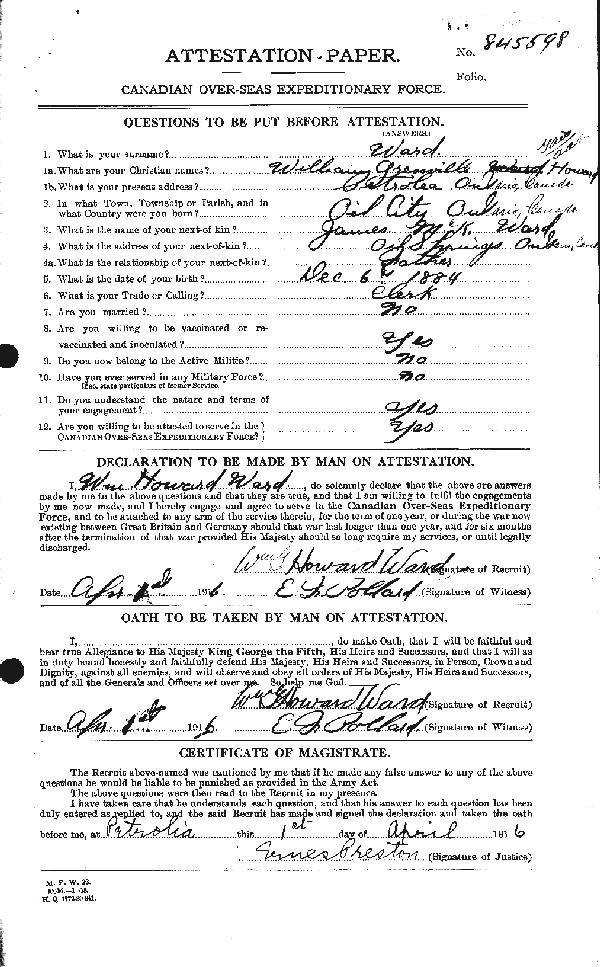 No. 845598
Folio.
ATTESTATION PAPER.
CANADIAN OVER-SEAS EXPEDITIONARY FORCE.
QUESTIONS TO BE PUT BEFORE ATTESTATION.
(ANSWERS)
1. What is your surname? Ward
1a. What are your Christian names? William Grenville Howard
1b. What is your present address? Petrolea Ontario, Canada
2. In what Town, Township or Parish, and in
what Country were you born? Oil City Ontario, Canada
3. What is the name of your next-of-kin? James McK. Ward
4. What is the address of your next-of-kin? Oil Springs
4a. What is the relationship of your next-of-kin? Father
5. What is the date of your birth? Dec 6th 1884
6. What is your Trade or Calling? Clerk
7. Are you married? No
8. Are you willing to be vaccinated or re-
vaccinated and inoculated? Yes
9. Do you now belong to the Active Militia? No
10. Have you ever served in any Military Force? No
If so, state particulars of former Service.
11. Do you understand the nature and terms of
your engagement? Yes
12. Are you willing to be attested to serve in the }
CANADIAN OVER-SEAS EXPEDITIONARY FORCE? } Yes
DECLARATION TO BE MADE BY MAN ON ATTESTATION.
I, Wm Howard Ward, do solemnly declare that the above are answers
made by me to the above questions and that they are true, and that I am willing to fulfil the engagements
by me now made, and I hereby engage and agree to serve in the Canadian Over-Seas Expeditionary
Force, and to be attached to any arm of the service therein, for the term of one year, or during the war now
existing between Great Britain and Germany should that war last longer than one year, and for six months
after the termination of that war provided His Majesty should so long require my services, or until legally
discharged.
Wm G Howard Ward (Signature of Recruit)
Date Apr 1st 1916 E J Pollard (Signature of Witness)
OATH TO BE TAKEN BY MAN ON ATTESTATION.
I, , do make Oath, that I will be faithful and
bear true Allegiance to His Majesty King George the Fifth, His Heirs and Successors, and that I will as
in duty bound honestly and faithfully defend His Majesty, His Heirs and Successors, in Person, Crown and
Dignity, against all enemies, and will observe and obey all orders of His Majesty, His Heirs and Successors,
and of all the Generals and Officers set over me. So help me God.
Wm G Howard Ward (Signature of Recruit)
Date Apr 1st 1916 E J Pollard (Signature of Witness)
CERTIFICATE OF MAGISTRATE.
The Recruit above-named was cautioned by me that if he made any false answer to any of the above
questions he would be liable to be punished as provided in the Army Act.
The above questions were then read to the Recruit in my presence.
I have taken care that he understands each question, and that his answer to each question has been
duly entered as replied to, and the said Recruit has made and signed the declaration and taken the oath
before me, at Petrolia this 1st day of April 1916
Preston (Signature of Justice)
M. F. W. 23.